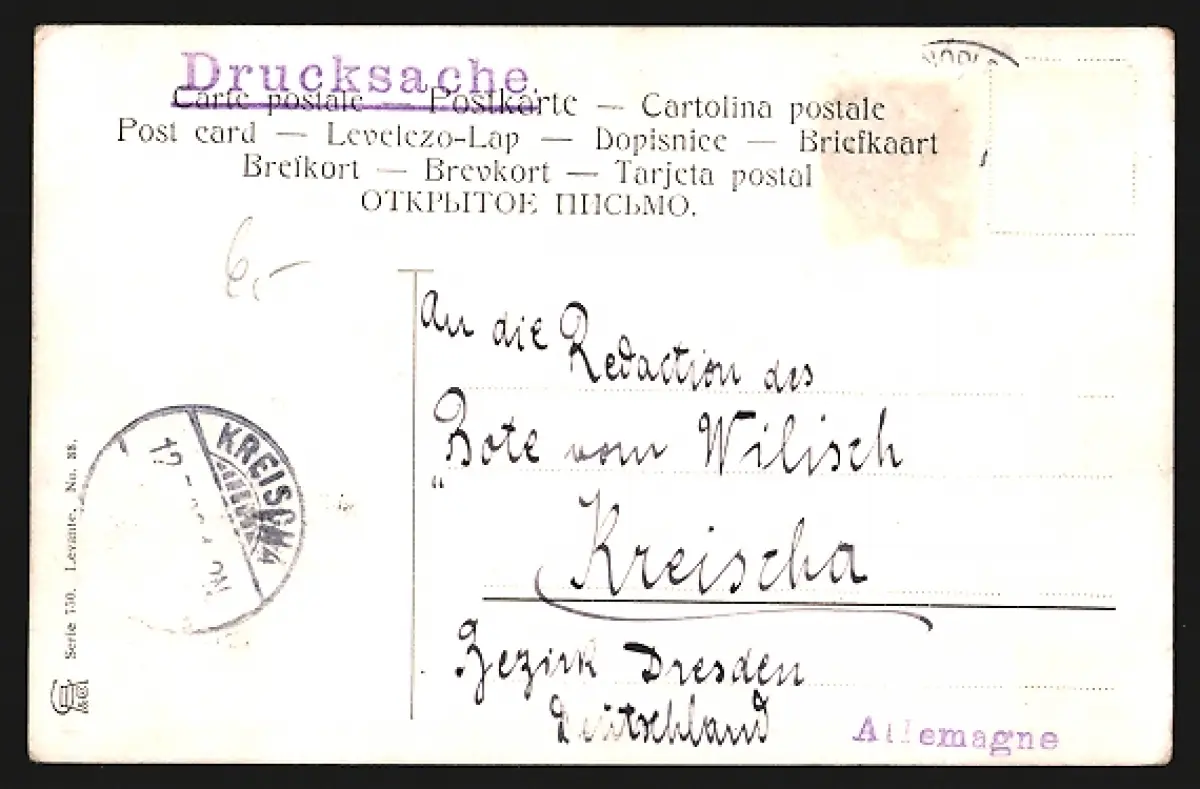 Drucksache
Carte postale — Postkarte — Cartolina postale
Post card — Levelezo-Lap — Dopisnice — Briefkaart
Brefkort — Brevkort — Tarjeta postal
ОТКРЫТОЕ ПИСЬМО.
6,-
An die Redaction des
"Bote vom Wilisch
Kreischa
Bezirk Dresden
Deutschland
Allemagne
KREISCHA
12
Serie 750. Levante. No. 88.